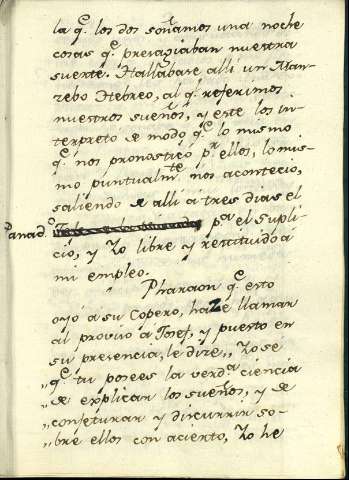 la q.^e los dos soñamos una noche
cosas q.^e presagiaban nuestra
suerte. Hallabase alli un Man-
zebo Hebreo, al q.^e referimos
nuestros sueños, y este los in-
terpretó de modo q.^e lo mesmo
q.^e nos pronosticó p.^r ellos, lo mis-
mo puntualm.^te nos acontecio,
saliendo de alli a tres dias el
Panad.^o p.^a el supli-
cio, y Yo libre y restituido à
mi empleo.
Pharaon q.^e esto
oyó a su Copero, haze llamar
al proviso a Josef, y puesto en
su presencia, le dize, „ Yo se
„ q.^e tu posees la verd.^a ciencia
„ de explicar los sueños, y de
„ conjeturar y discurrir so-
„ bre ellos con acierto, Yo he